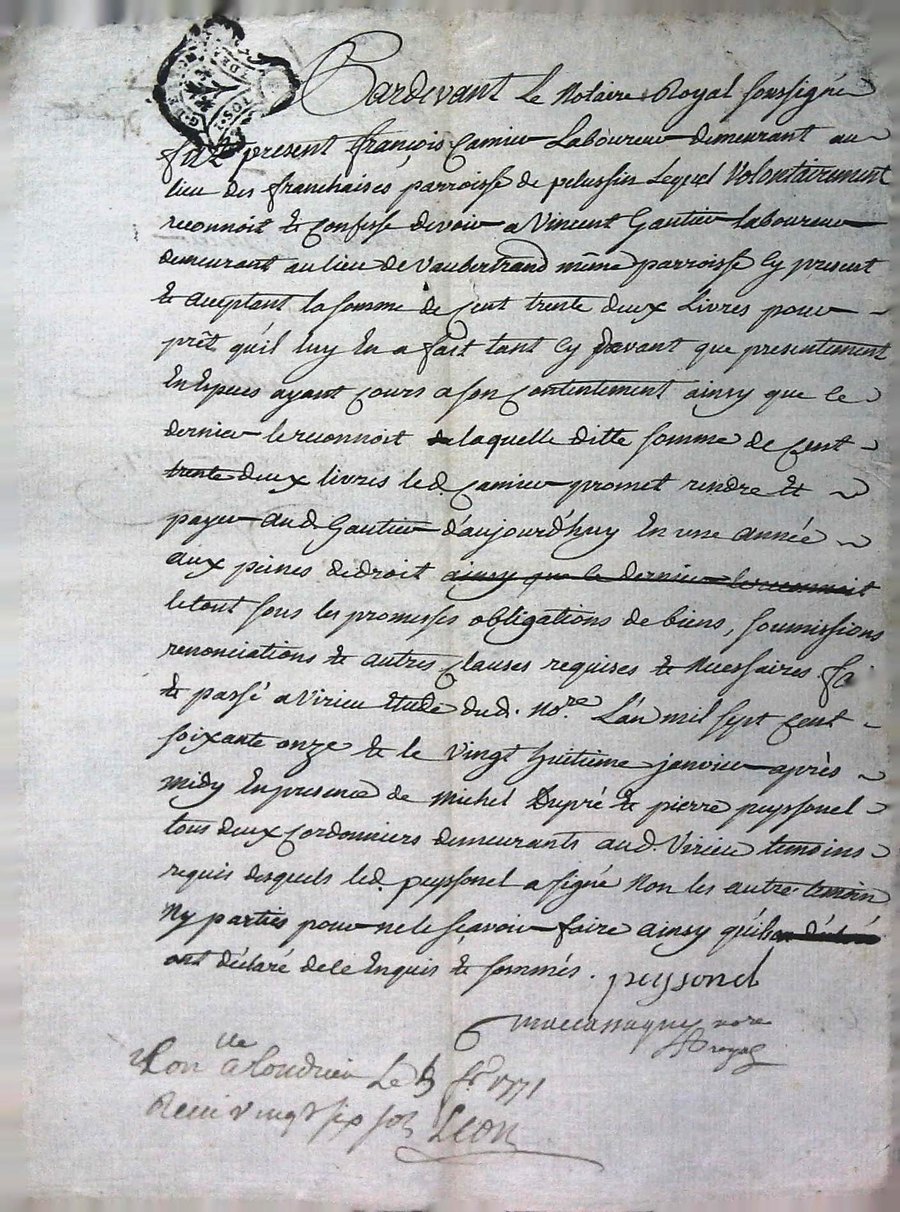 Pardevant Le Notaire Royal soussigné
fut present françois Camier Laboureur demeurant au
lieu des franchaises parroisse de pelussin Lequel Volontairement
reconnoit et confesse devoir a Vincent Gautier Laboureur
demeurant au lieu de Vaubertrand même parroisse Cy present
et aceptant la somme de Cent trente deux Livres pour
prêt qu'il luy En a fait tant Cy devant que presentement
En Especes ayant Cours a son Contentement ainsy que le
dernier le reconnoit laquelle ditte somme de Cent
trente deux livres led. Camier promet rendre et
payer aud Gautier d'aujourd'huy En une année
aux peines de droit ainsy que le dernier le reconnoit
le tout sous les promesses obligations de biens, soumissions
renonciations et autres Clauses requises et Necessaires fai
et passé a Virieu Etude dud. No.re L'an mil sept Cent
soixante onze et le vingt huitieme janvier après
midy En presence de Michel Dupré et pierre peyssonel
tous deux Cordonniers demeurants aud. Virieu temoins
requis desquels led. peyssonel a signé Non les autre temoin
Ny parties pour ne le sçavoir faire ainsy qu'ils
ont déclaré de ce Enquis et sommés. peyssonel
nore
royal
a Condrieu Le 5 fr 1771
Receu vingt six sols Leon